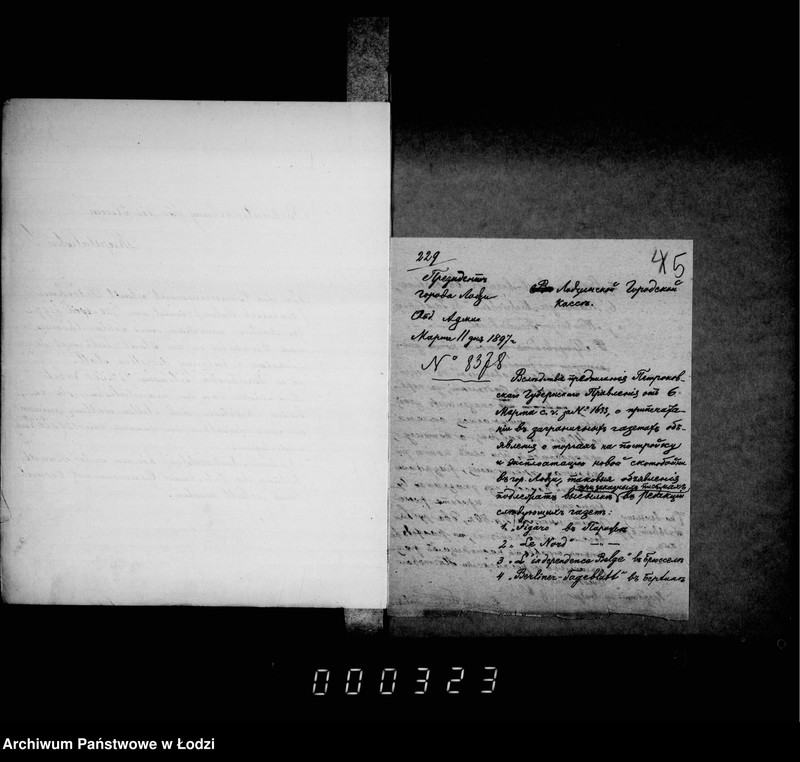 229
45
Президентъ
города Лодзи
Отд. Админ.
Марта 11 дня 1897 г.
№ 8378
Лодзинской Городской
Кассѣ.
Вслѣдствіе предложенія Петроков-
скаго Губернскаго Правленія отъ 6
Марта с. г. за № 1633, о припечата-
ніи въ заграничныхъ газетахъ объ-
явленія о торгахъ на постройку
и эксплоатацію новой скотобойни
въ гор. Лодзи, таковыя объявленія
при заказныхъ письмахъ
подлежатъ высылкѣ въ редакціи
слѣдующихъ газетъ:
1. „Figaro" въ Парижѣ
2. „Le Nord" — —
3. „L'independence Belge" въ Брюсселѣ
4. „Berliner-Tageblatt" въ Берлинѣ
000323
Archiwum Państwowe w Łodzi